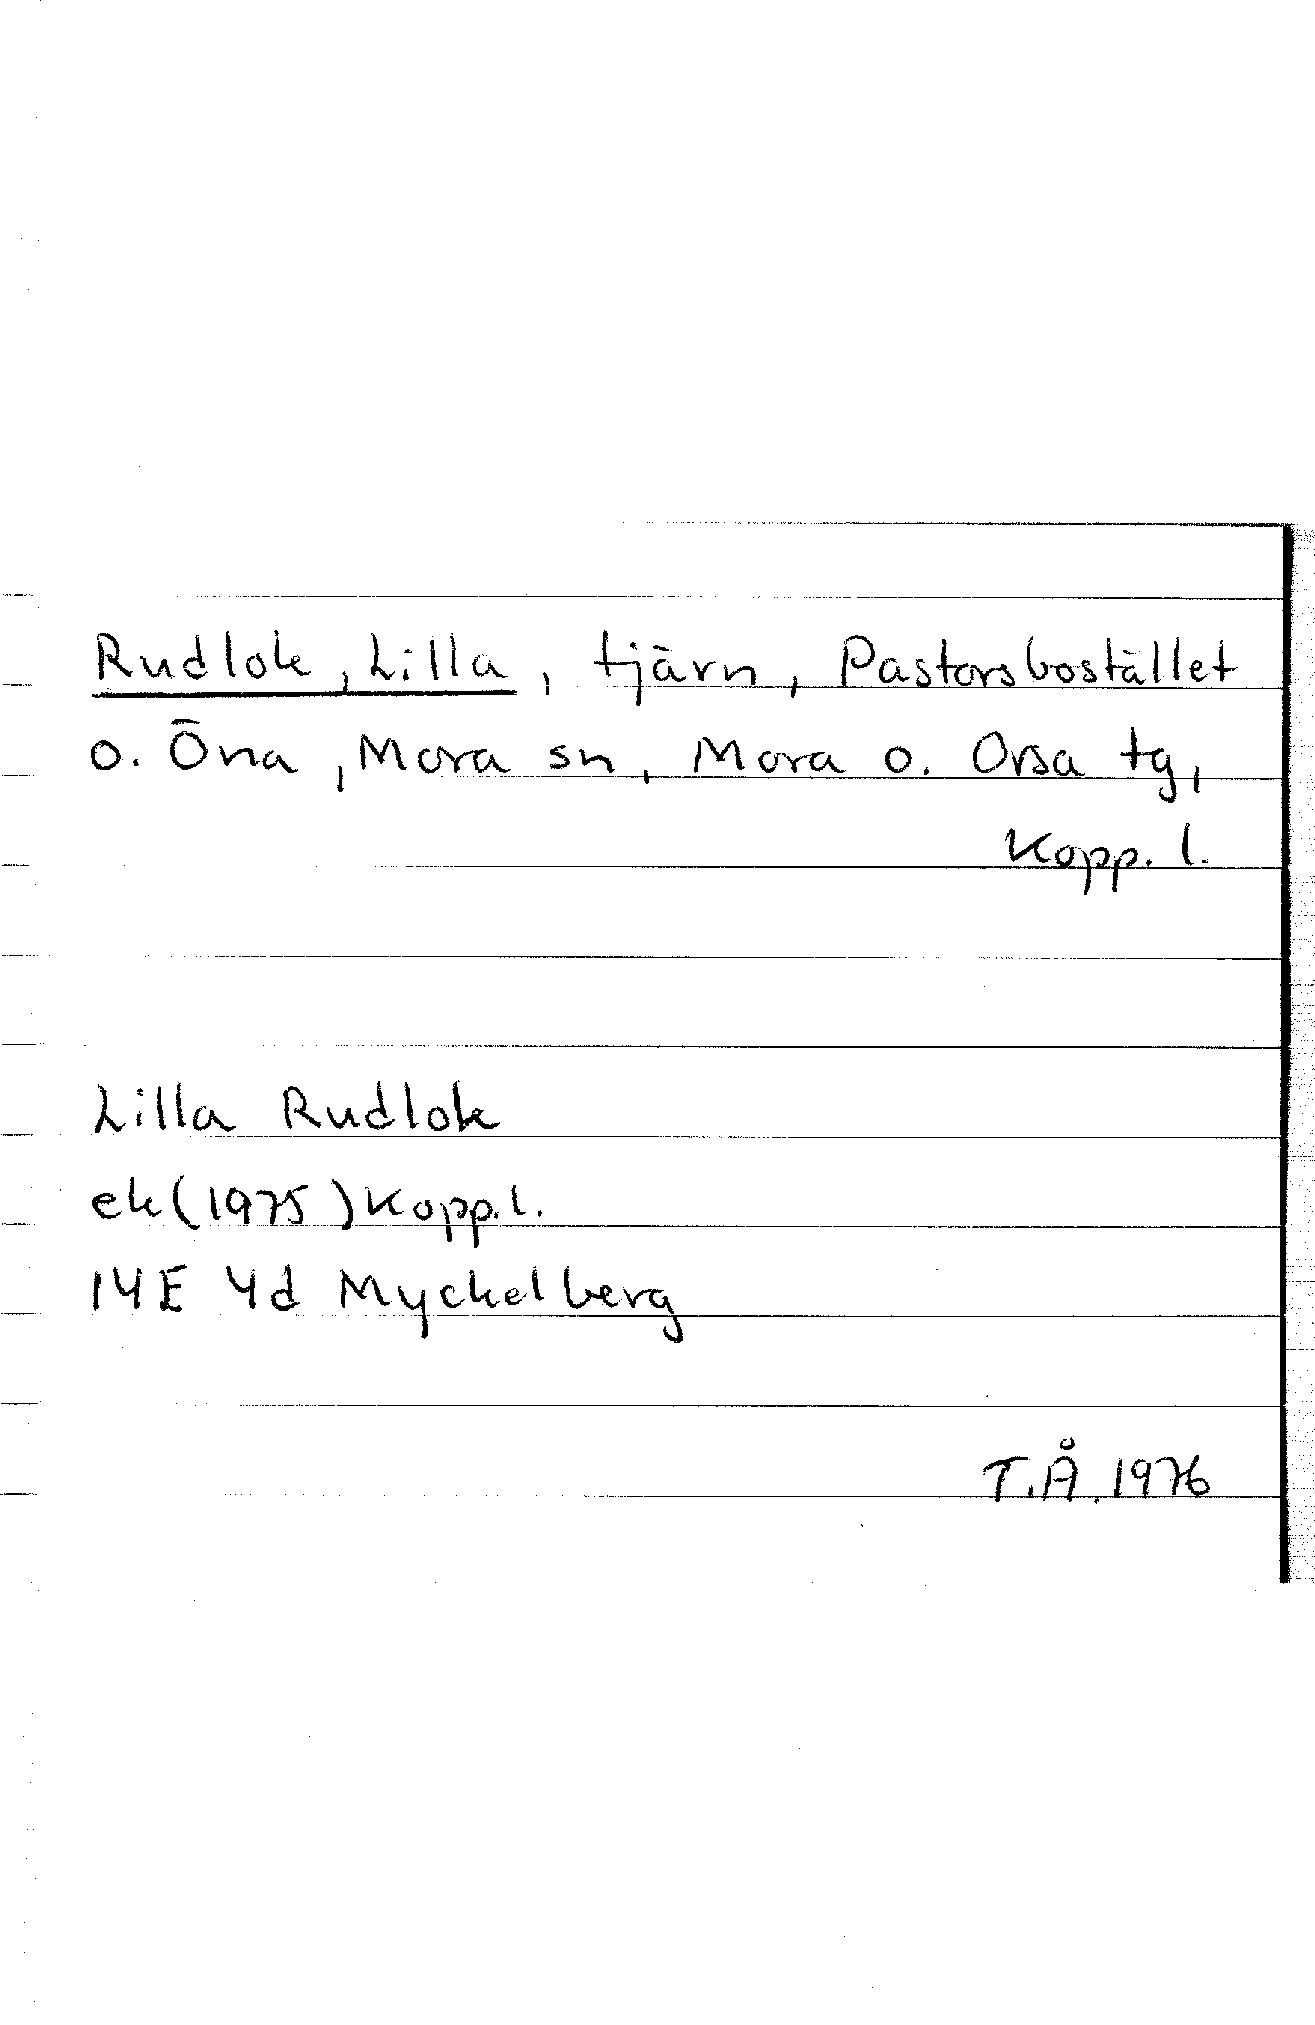 Rudlok, Lilla, tjärn, Pastorsbostället
o. Öna, Mora sn, Mora o. Orsa tg,
Kopp. l.
Lilla Rudlok
ek (1975) Kopp. l.
14E 4d Myckelberg
T.Å. 1976